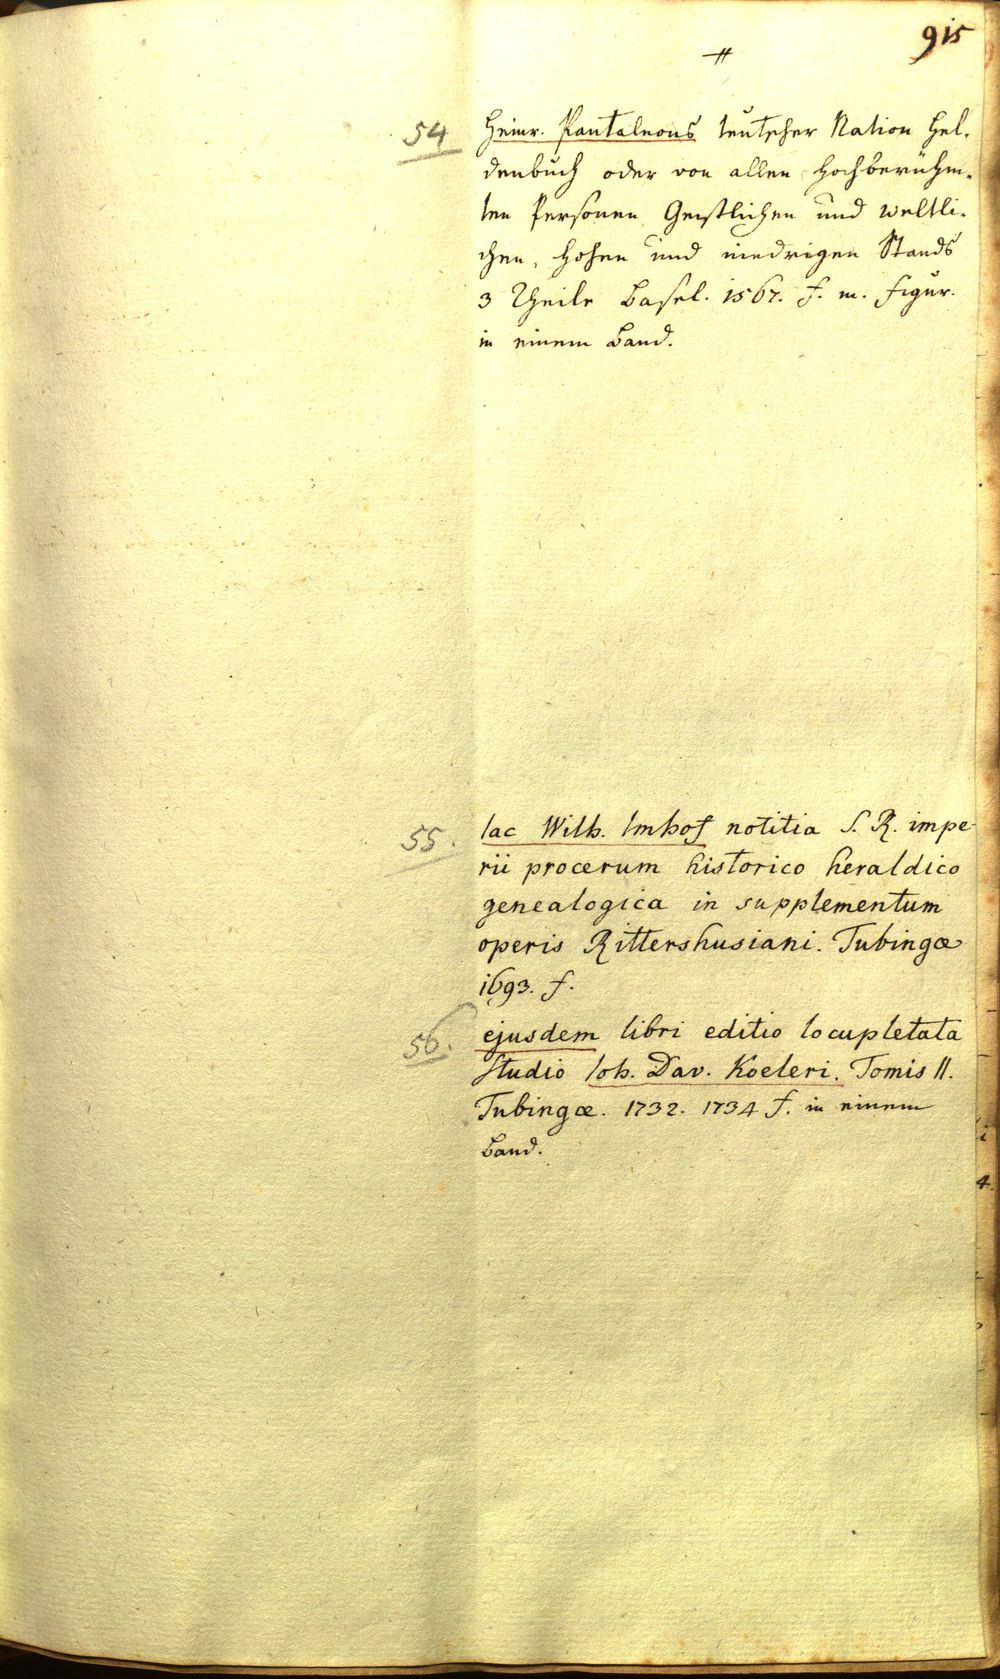 915
54 Heinr. Pantaleons teutscher Nation Hel-
denbuch oder von allen Hochberühm-
ten Personen Geistlichen und weltli-
chen, hohen und niedrigen Stands
3 Theile Basel. 1567. f. m. Figur.
in einem Band.
55. Iac Wilh. Imhof notitia S. R. impe
rii procerum historico heraldico
genealogica in supplementum
operis Rittershusiani. Tubingæ
1693. f.
56. ejusdem libri editio locupletata
studio Ioh. Dav. Koeleri. Tomis II.
Tubingæ. 1732. 1734 f. in einem
Band.